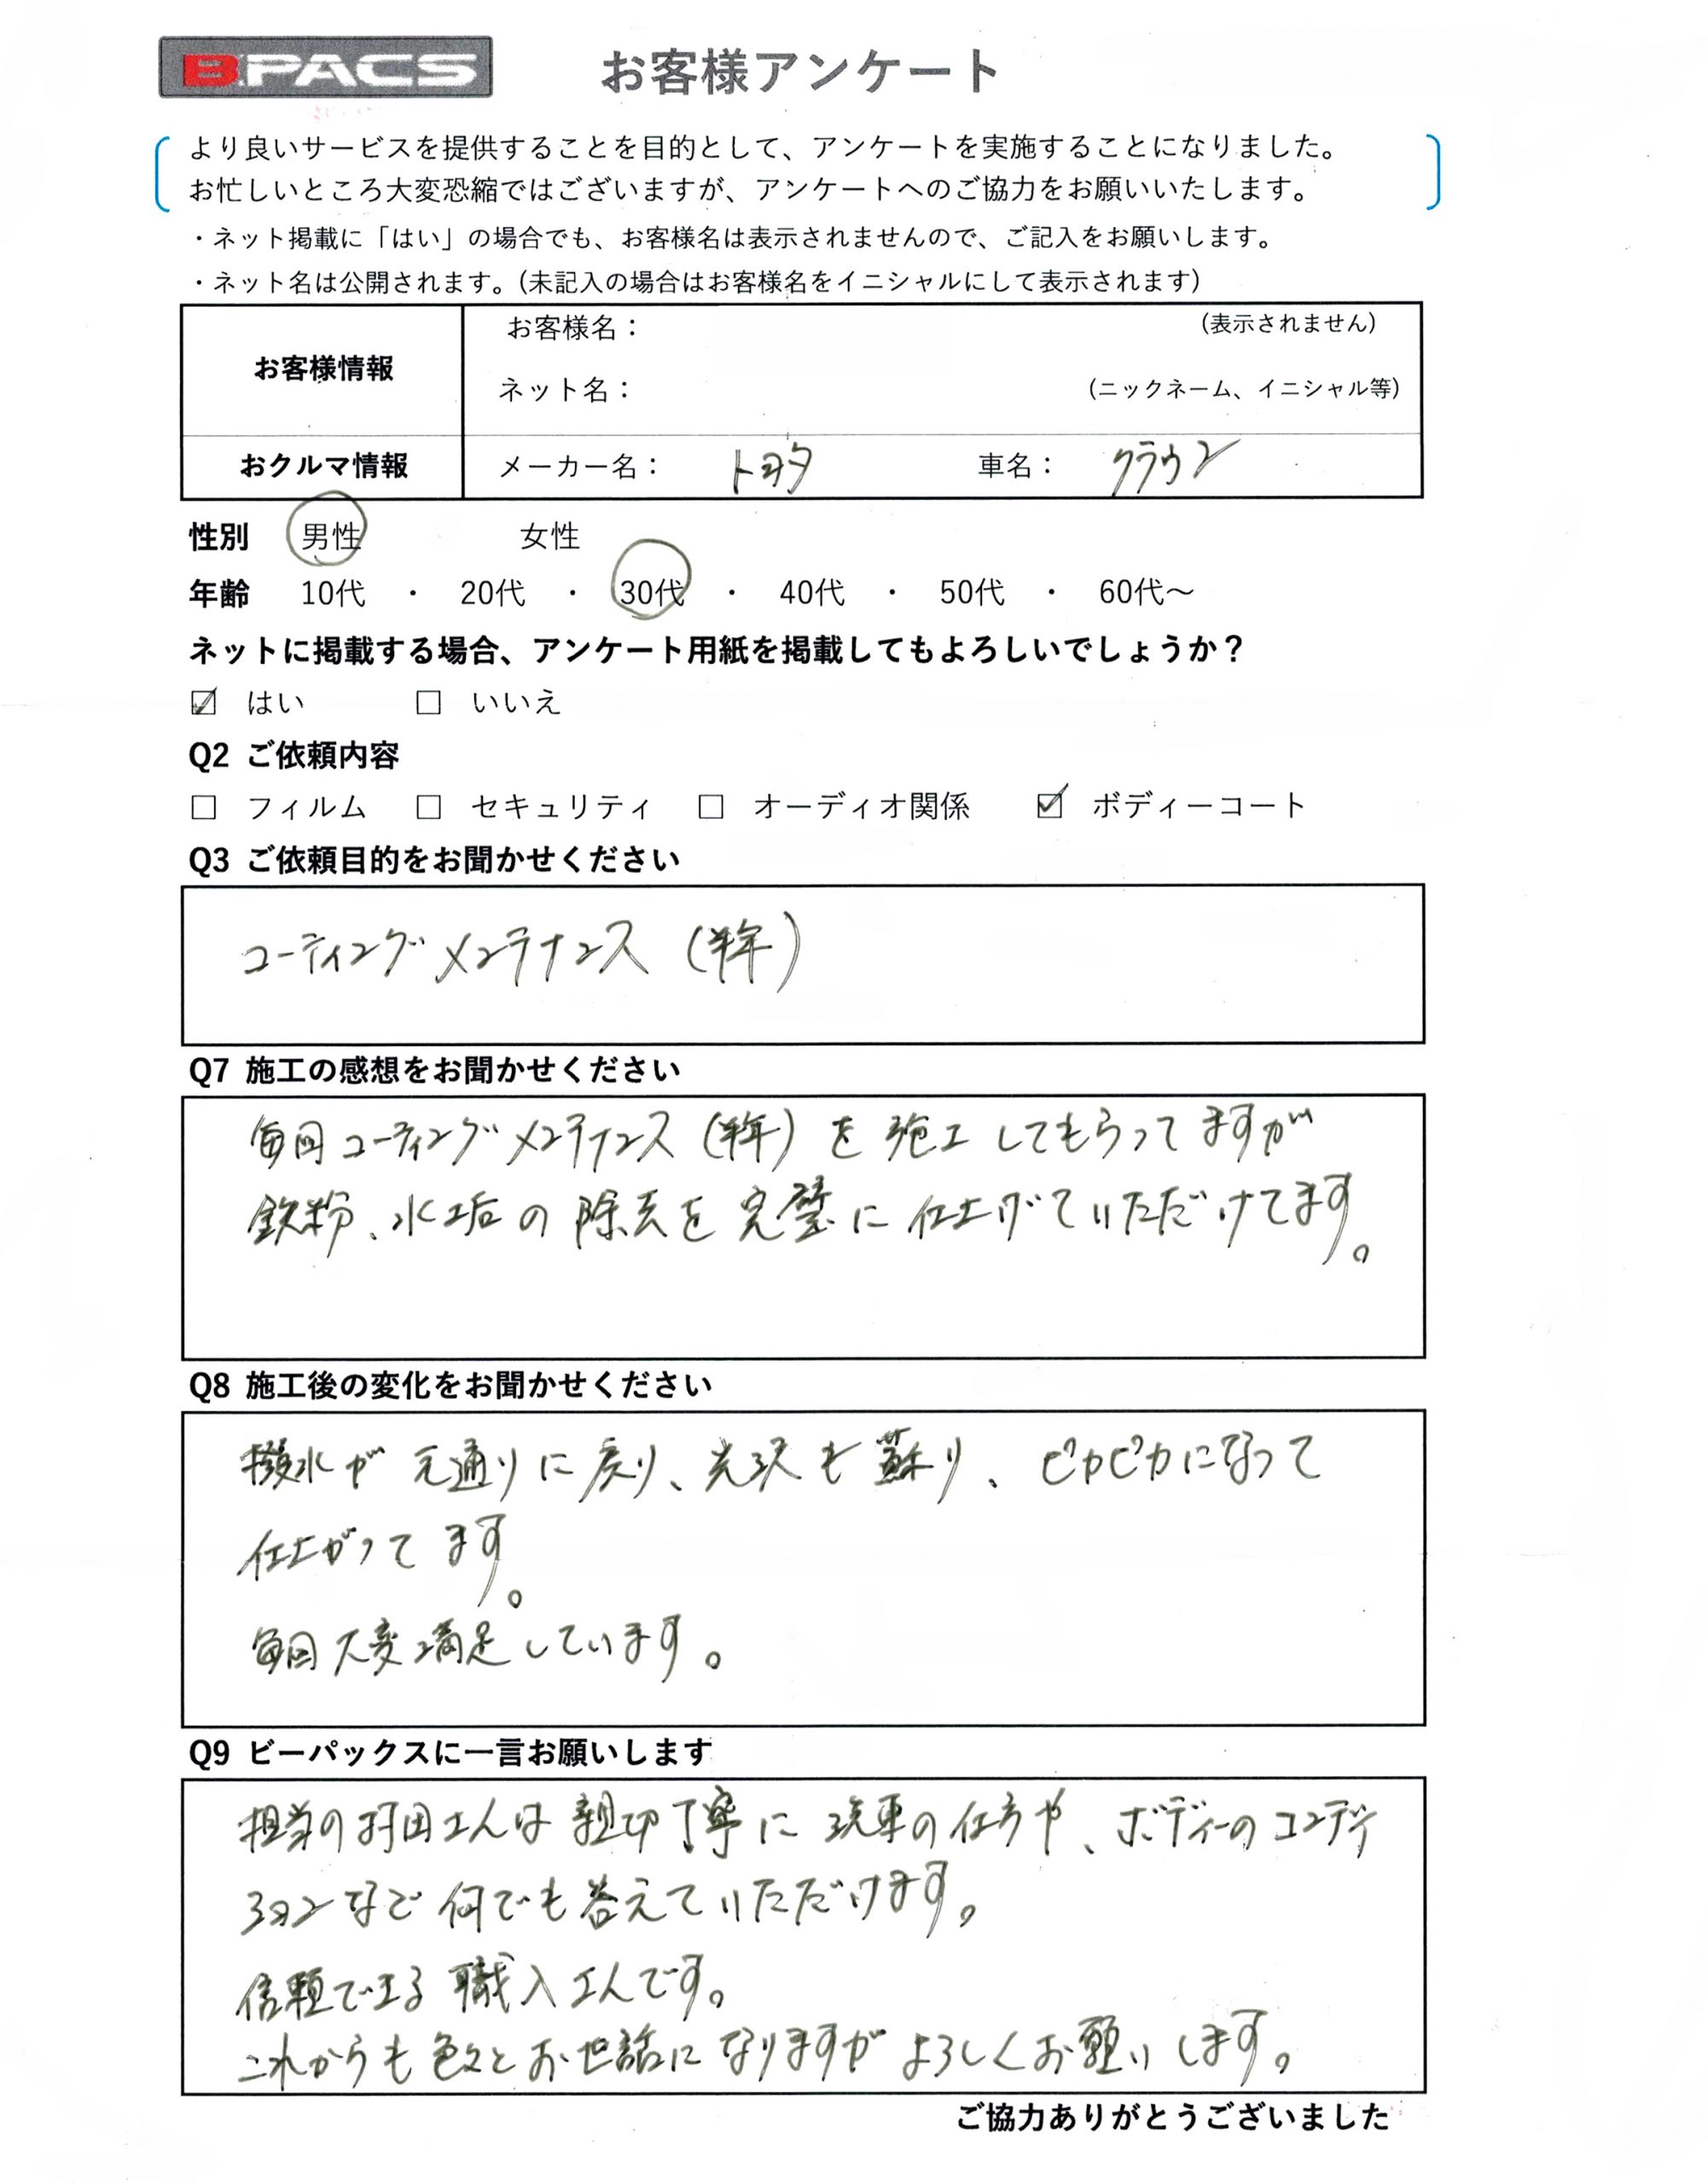 B.PACS
お客様アンケート
より良いサービスを提供することを目的として、アンケートを実施することになりました。
お忙しいところ大変恐縮ではございますが、アンケートへのご協力をお願いいたします。
・ネット掲載に「はい」の場合でも、お客様名は表示されませんので、ご記入をお願いします。
・ネット名は公開されます。(未記入の場合はお客様名をイニシャルにして表示されます)
お客様情報
お客様名： (表示されません)
ネット名： (ニックネーム、イニシャル等)
おクルマ情報 メーカー名： トヨタ 車名： クラウン
性別 男性 女性
年齢 10代 ・ 20代 ・ 30代 ・ 40代 ・ 50代 ・ 60代～
ネットに掲載する場合、アンケート用紙を掲載してもよろしいでしょうか？
☑ はい □ いいえ
Q2 ご依頼内容
□ フィルム □ セキュリティ □ オーディオ関係 ☑ ボディーコート
Q3 ご依頼目的をお聞かせください
コーティングメンテナンス (半年)
Q7 施工の感想をお聞かせください
毎回コーティングメンテナンス (半年) を施工してもらってますが
鉄粉、水垢の除去を完璧に仕上げていただけてます。
Q8 施工後の変化をお聞かせください
撥水が元通りに戻り、光沢も蘇り、ピカピカになって
仕上がってます。
毎回大変満足しています。
Q9 ビーパックスに一言お願いします
担当の村田さんは親切丁寧に洗車の仕方や、ボディーのコンディ
ションなど何でも答えていただけます。
信頼できる職人さんです。
これからも色々とお世話になりますがよろしくお願いします。
ご協力ありがとうございました